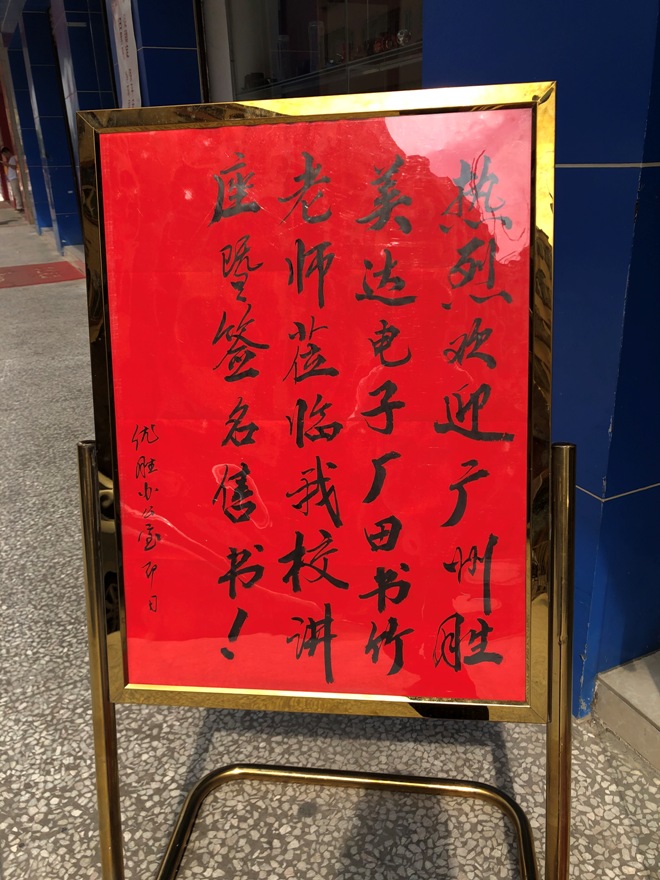 热烈欢迎广州胜
美达电子厂田书竹
老师莅临我校讲
座暨签名售书！
优胜办公室 即日